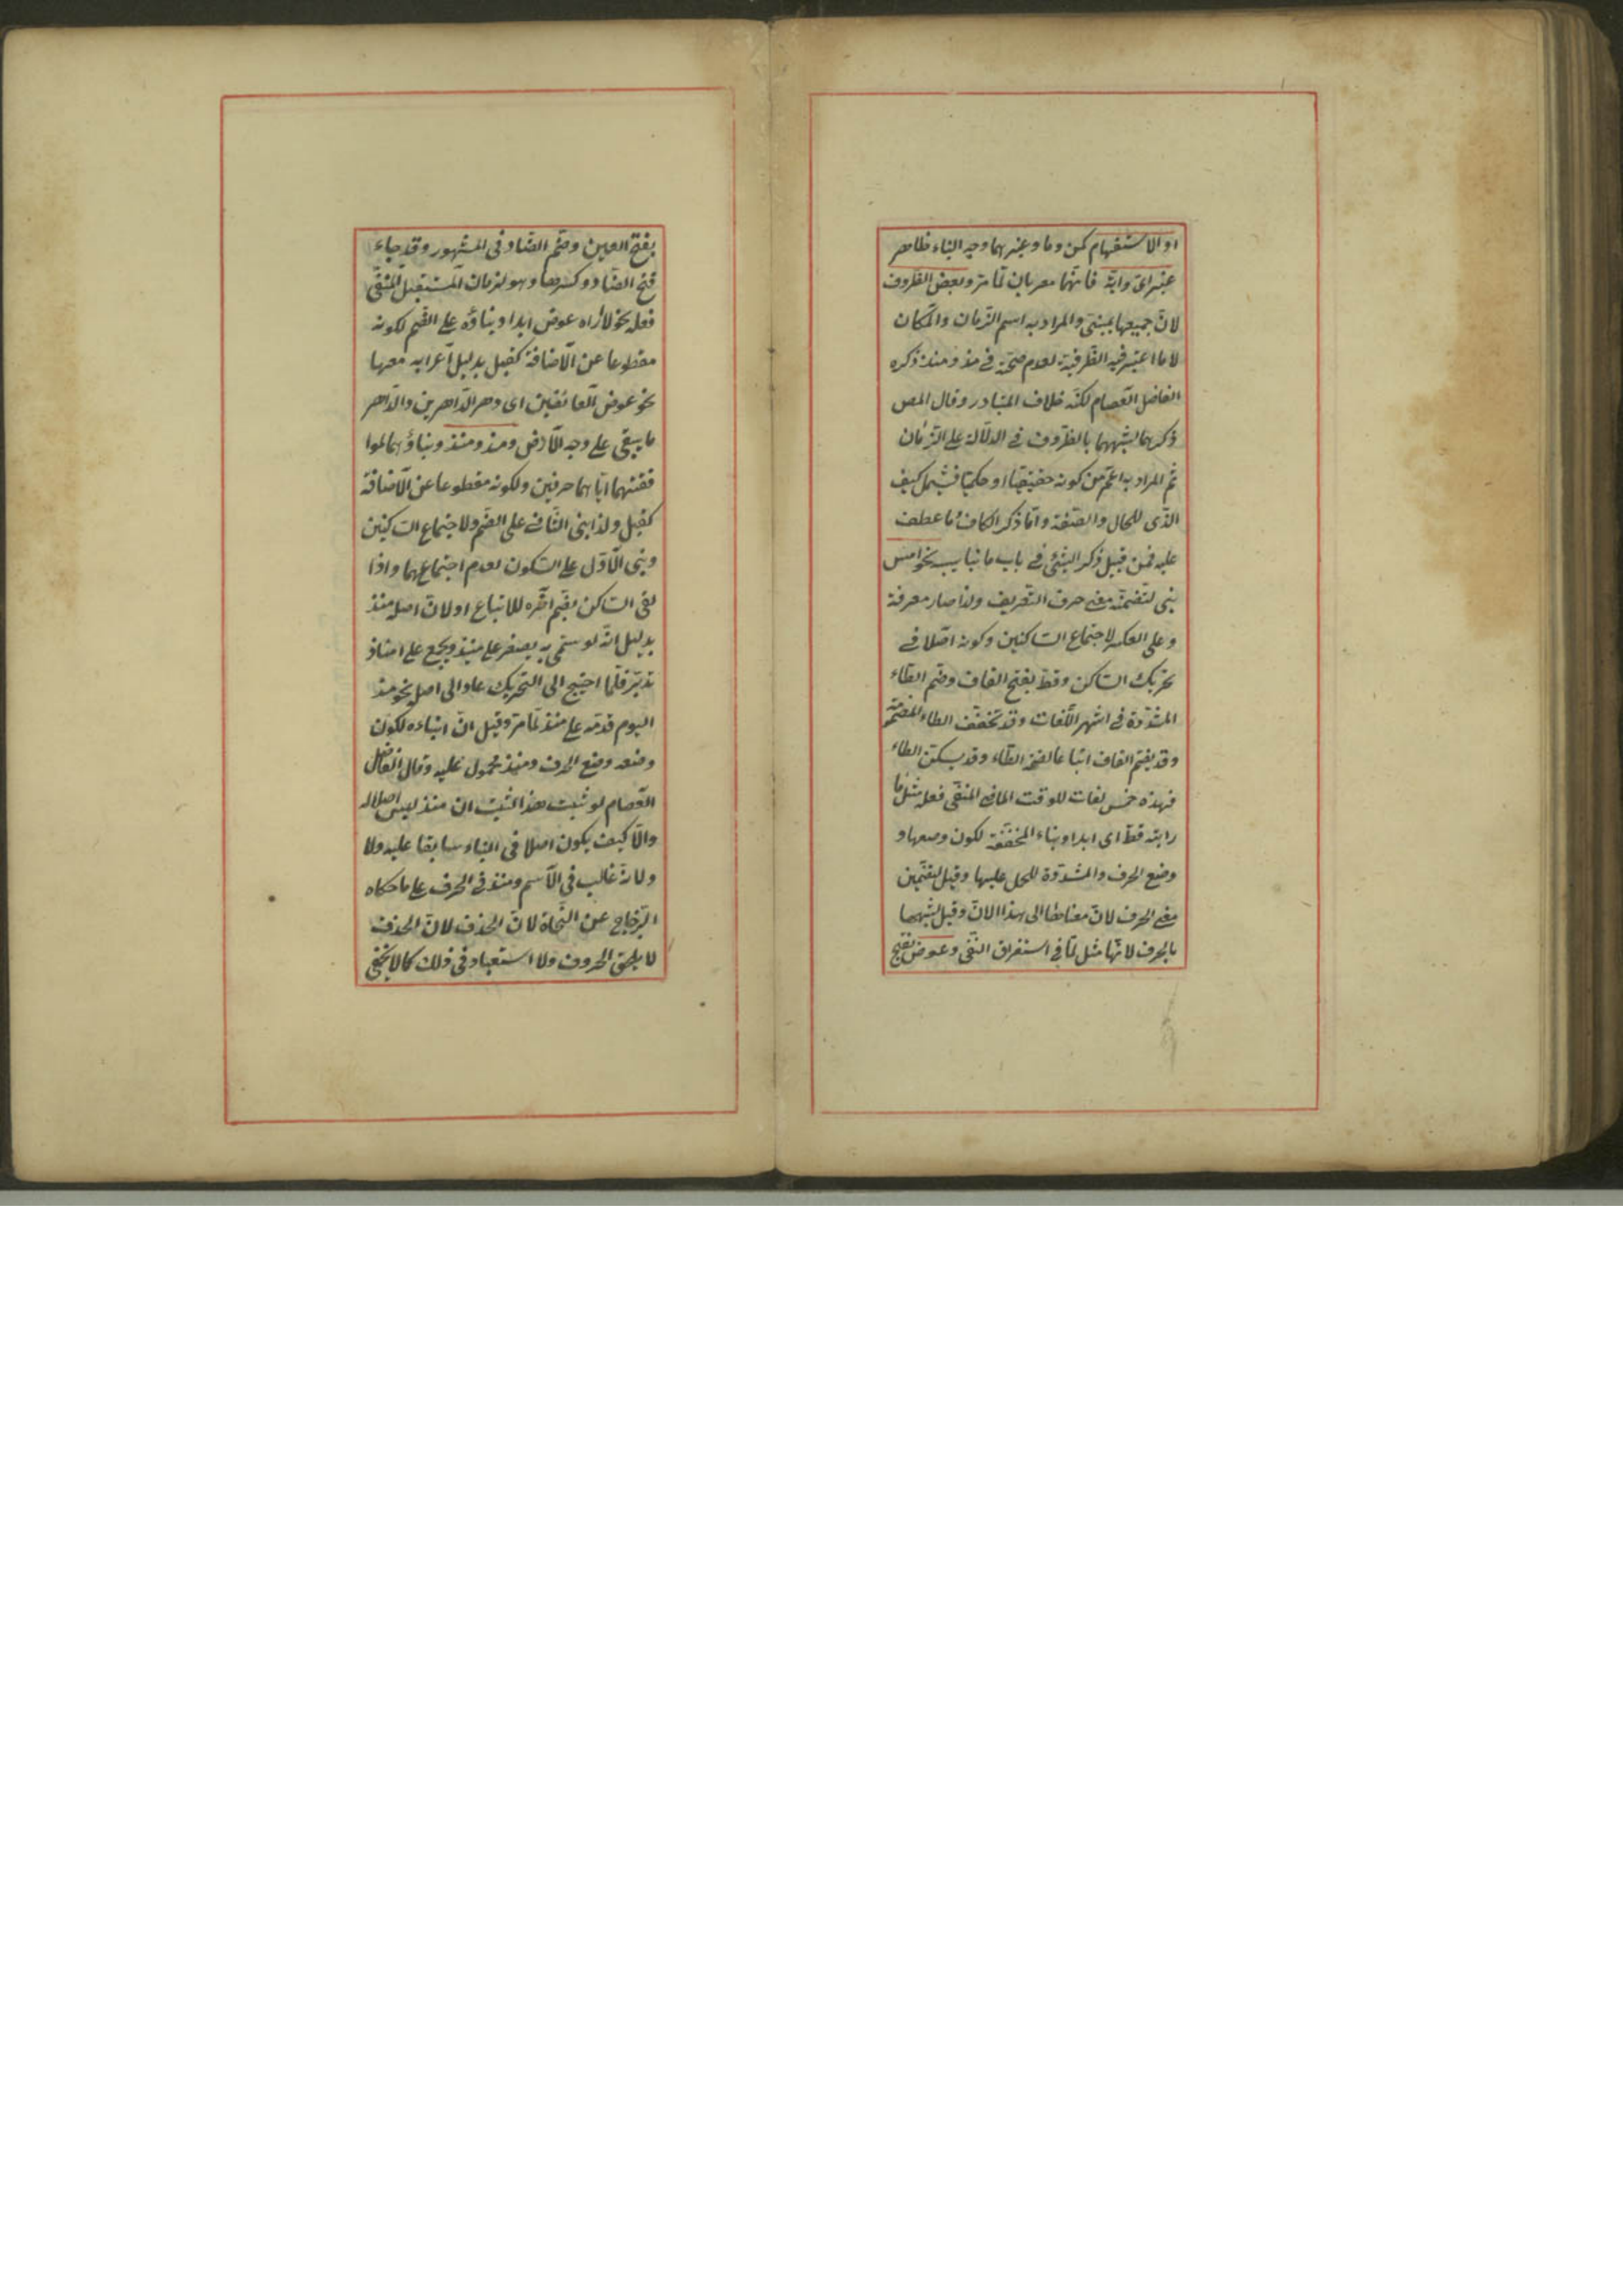 او الاستفهام كمن وما وغيرهما وجه البناء ظاهر
غير اىّ وايّة فانّهما معربان لمّا مرّ وبعض الظروف
لانّ جميعها بمبنىّ والمراد به اسم الزّمان والمكان
لا ما اعتبر فيه الظّرفيّة لعدم صحّته فى مذ ومنذ ذكره
الفاضل العصام لكنّه خلاف المتبادر وقال المص
ذكرهما لشبههما بالظّروف فى الدلالة على الزّمان
ثم المراد به اعمّ من كونه حقيقيّا او حكميّا فيشمل كيف
الذّى للحال والصّفة وامّا ذكر الكاف وما عطف
عليه فمن قبيل ذكر الشّئ فى باب ما يناسبه نحو امس
بنى لتضمّنه معنى حرف التعريف ولذا صار معرفة
وعلى الكسر لاجتماع السّاكنين وكونه اصلا فى
تحريك السّاكن وقطّ بفتح القاف وضم الطاء
المشدّدة فى اشهر اللّغات وقد تخفّف الطاء المضمومة
وقد يضمّ القاف اتباعا لضمّة الطّاء وقد يسكّن الطاء
فهذه خمس لغات للوقت الماضى المنفى فعله مثل ما
رايته قطّ اى ابدا وبناء المخفّفة لكون وضعها و
وضع الحرف والمشدّدة للحمل عليها وقيل لتضمين
معنى الحرف لانّ معناها الى هذا الان وقيل لشبهها
بالحرف لانّها مثل لمّا فى استغراق النّفى وعوض بفتح
بفتح العين وضم الضّاد فى المشهور وقد جاء
فتح الضّاد وكسرها وهو لزمان المستقبل المنفى
فعله نحو لا أراه عوض ابدا وبناؤه على الضّم لكونه
مقطوعا عن الاضافة كقبل بدليل اعرابه معها
نحو عوض العائضين اى دهر الدّاهرين والدّاهر
ما يبقى على وجه الارض ومذ ومنذ وبناؤهما لموا
فقتهما ايّاهما حرفين ولكونه مقطوعا عن الاضافة
كقبل ولذا بنى الثّانى على الضّم ولاجتماع السّاكنين
وبنى الاوّل على السّكون لعدم اجتماعهما واذا
لقى السّاكن يضمّ اخره للاتباع او لانّ اصله منذ
بدليل انّه لو سمّى به يصغر على منيذ ويجمع على امناذ
تدبّر فلمّا احتيج الى التحريك عاد الى اصله نحو مذ
اليوم قدّمه على منذ لمّا مرّ وقيل انّ ابناءه لكون
وضعه وضع الحرف ومنذ محمول عليه وقال الفاضل
العصام لو ثبت هذا لثبت ان منذ ليس اصلا له
والّا كيف يكون اصلا فى البناء سابقا عليه ولا
ولانّه غالب فى الاسم ومنذ فى الحرف على ما حكاه
الزّجاج عن النّحاة لانّ الحذف لانّ الحذف
لا يلحق الحروف ولا استعباد فى ذلك كما لا يخفى